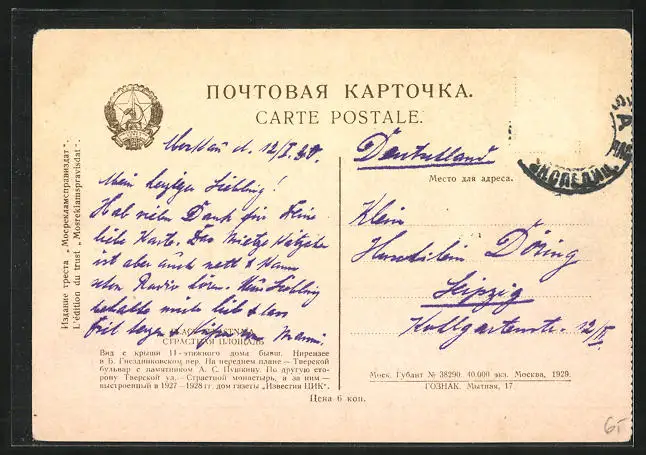 ПОЧТОВАЯ КАРТОЧКА.
CARTE POSTALE.
Издание треста „Мосрекламсправиздат".
L'édition du trust „Mosreklamspravisdat".
d. 12/I.30.
Mein Liebling!
Hab vielen Dank für Deine
liebe Karte. Das Mietze Kätzchen
ist aber auch nett & kann
den Radio hören. Mein Liebling
behalte mich lieb & lass
Dich Mammi.
СТРАСТНАЯ ПЛОЩАДЬ
Вид с крыши 11-этажного дома бывш. Нирензее
в Б. Гнездниковском пер. На переднем плане—Тверской
бульвар с памятником А. С. Пушкину. По другую сто-
рону Тверской ул.—Страстной монастырь, а за ним—
выстроенный в 1927—1928 гг. дом газеты „Известия ЦИК".
Цена 6 коп.
Deutschland
Место для адреса.
Klein
Döring
Leipzig
12/II
Моск. Гублит № 38290. 40.000 экз. Москва, 1929.
ГОЗНАК. Мытная, 17
ЭКСПЕДИЦ
6,-